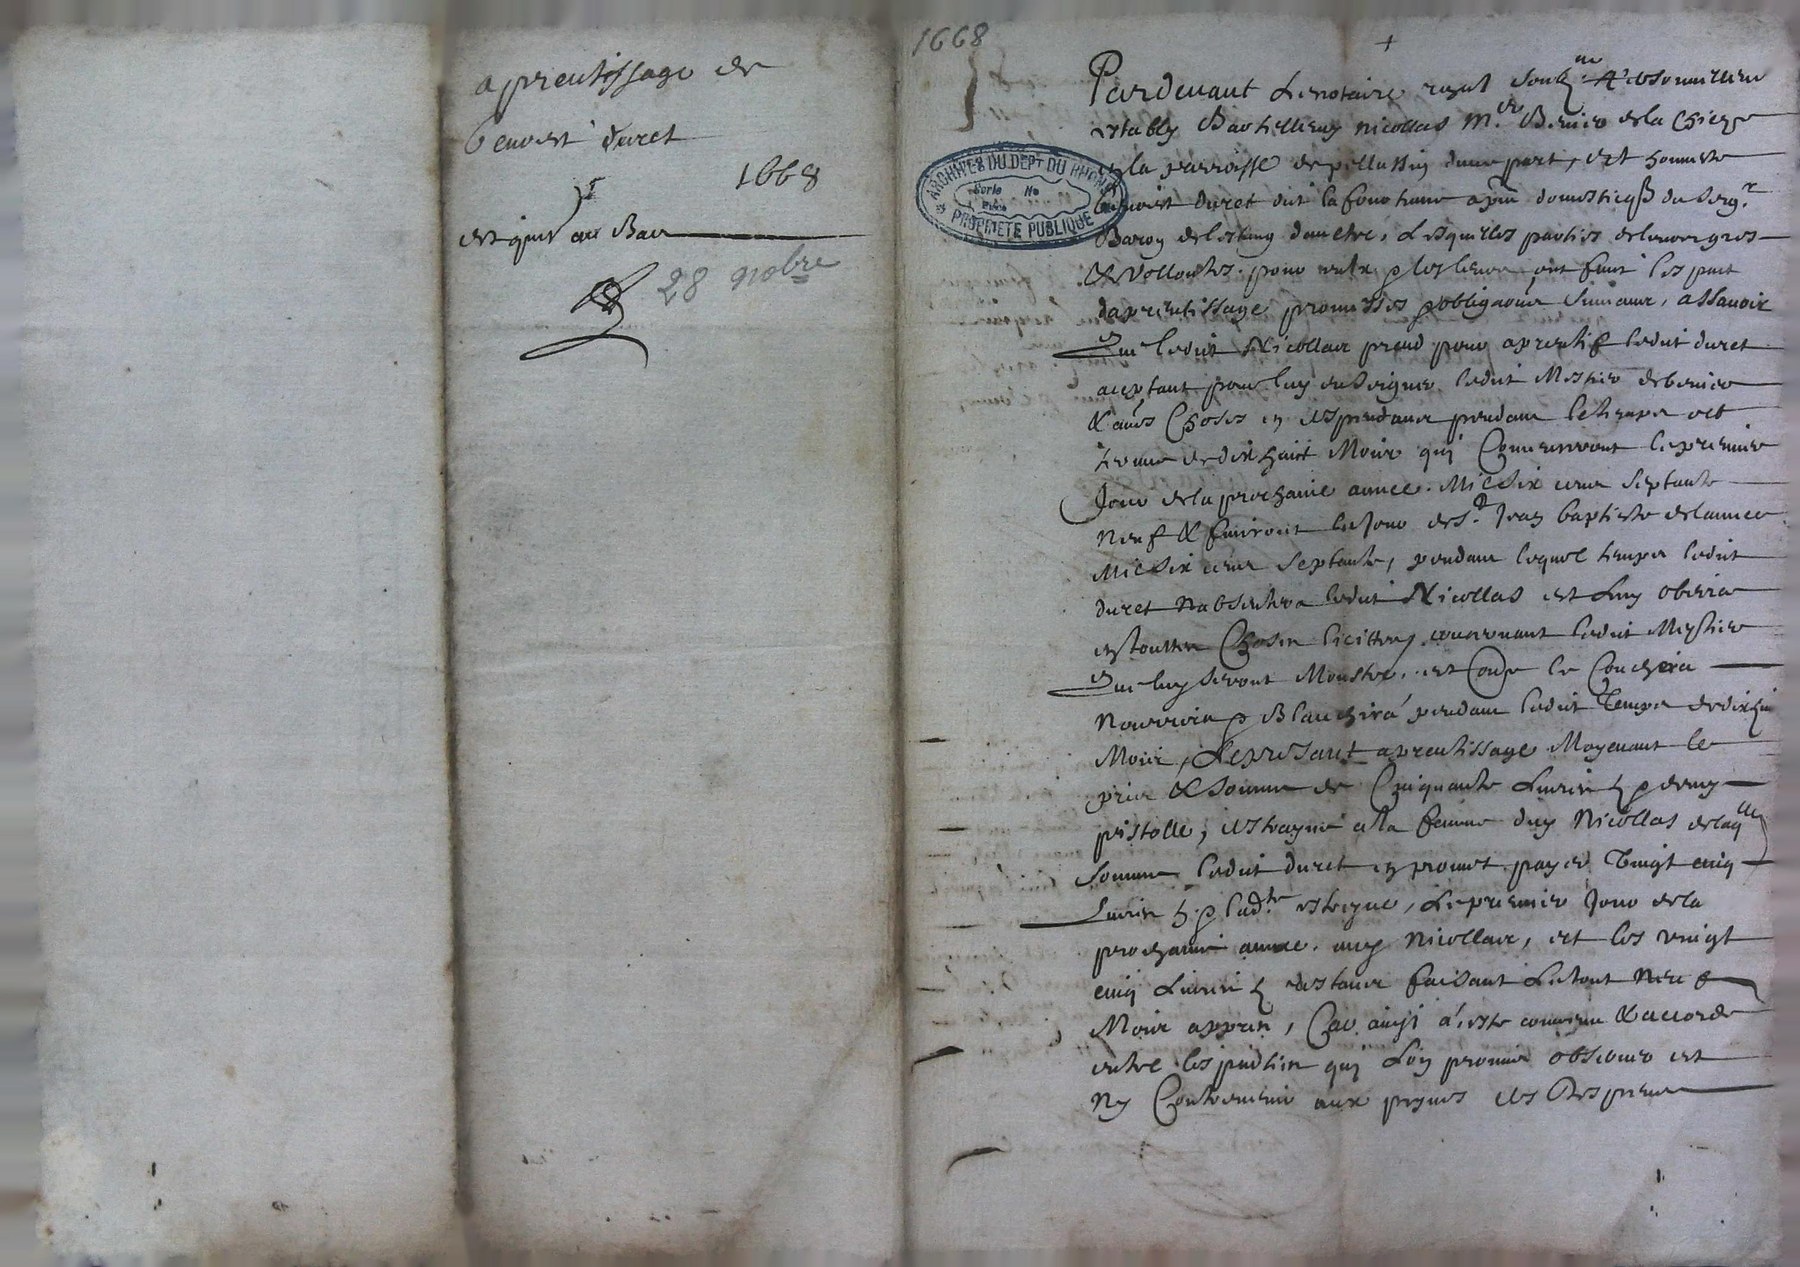 aprentissage de
benoist duret
1668
est quit au Bas
28 9obre
1668
Pardevant Le notaire royal soubz.ne &
estably Barthellemy nicollas m.e de la
la parroisse de pellussin dune part, et honneste
ARCHIVES DU DEPT DU RHONE
Série No
PROPRIETE PUBLIQUE
benoist duret dit la domesticq du seigr
Baron de Lestang dautre, Lesquelles parties de leurs gres
& vollontes. pour eulx & les leurs, ont faict les pact
daprentissage promesses & obligaons suivans, assavoir
Que ledit Nicollas prend pour aprentif ledit duret
aceptant pour luy enseigner ledit Mestier de
& aues Choses en despendans pendant le temps et
terme de dix huict Mois qui Commenceront le premier
Jour de la prochaine annee. Mil six cens septante
neuf & finiront le Jour de St. Jean baptiste de lannee
Mil six cens septante, pendant lequel temps ledit
duret nabsentera ledit Nicollas et Luy obeira
en touttes Choses licittes concernant ledit Mestier
Que luy seront Monstre. et le Couchera
Nourrira & Blanchira pendant ledit Temps de dix huit
Mois, Le presant aprentissage Moyenant le
prix & somme de Cinquante Livres & demy
pistolle, destrayne a la femme dud Nicollas de laqlle
somme ledit duret en promet payer Vingt cinq
Livres & lad.te estreyne, Le premier Jour de la
prochaine annee. aud Nicollas, et les vingt
cinq Livres restans faisant Le tout neuf
Mois appres, Car ainsi a este convenu & accorde
entre les parties qui Lon promis observer et
Ny Contrevenir aux peynes des despens